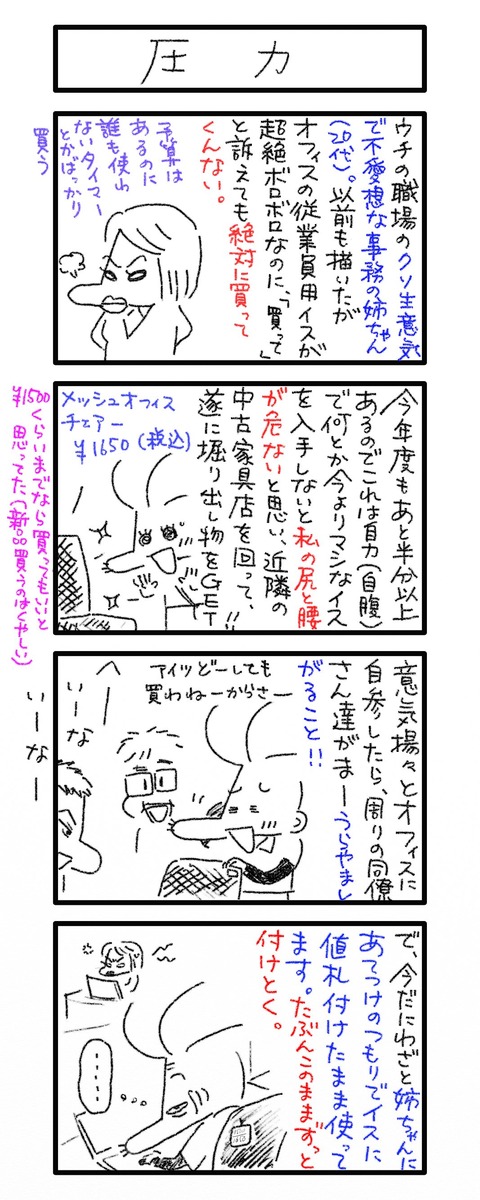 圧力
ウチの職場のクソ生意気
で不愛想な事務の姉ちゃん
(20代)。以前も描いたが
オフィスの従業員用イスが
超絶ボロボロなのに、「買って」
と訴えても絶対に買って
くんない。
予算は
あるのに
誰も使わ
ないタイマー
とかばっかり
買う
今年度もあと半分以上
あるのでこれは自力(自腹)
で何とか今よりマシなイス
を入手しないと私の尻と腰
が危ないと思い、近隣の
中古家具店を回って、
遂に掘り出し物をGET!!
メッシュオフィス
チェアー
¥1650(税込)
¥1500くらいまでなら買ってもいいと
思ってた(新品買うのはくやしい)
意気揚々とオフィスに
自参したら、周りの同僚
さん達がまーうらやまし
がること!!
アイツどーしても
買わねーからさー
へー
いーな
いーなー
で、今だにわざと姉ちゃんに
あてつけのつもりでイスに
値札付けたまま使って
ます。たぶんこのままずっと
付けとく。
……
…